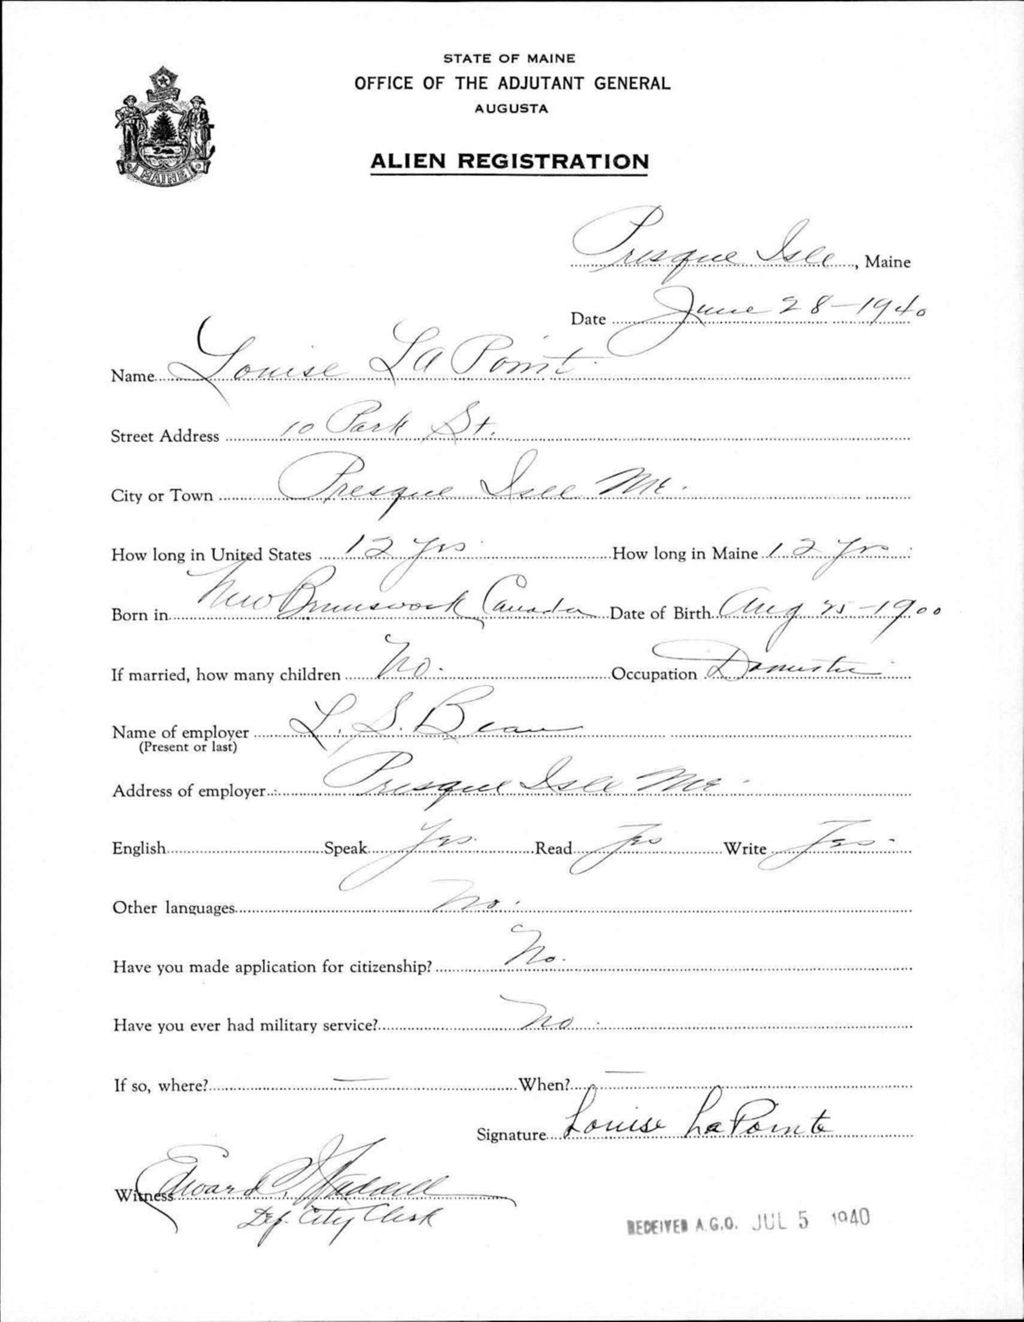 STATE OF MAINE
OFFICE OF THE ADJUTANT GENERAL
AUGUSTA
ALIEN REGISTRATION
MAINE
Presque Isle, Maine
Date June 28-1940
Name Louise La Point
Street Address 10 Park St.
City or Town Presque Isle Me.
How long in United States 12 yrs. How long in Maine 12 yrs.
Born in New Brunswick Canada Date of Birth Aug 25-1900
If married, how many children No. Occupation Domestic
Name of employer L. S. Bean
(Present or last)
Address of employer Presque Isle Me.
English Speak Yes. Read Yes Write Yes.
Other languages No.
Have you made application for citizenship? No.
Have you ever had military service? No.
If so, where? — When? —
Signature Louise La Pointe
Witness Edward P.
Dep. City Clerk
RECEIVED A.G.O. JUL 5 1940